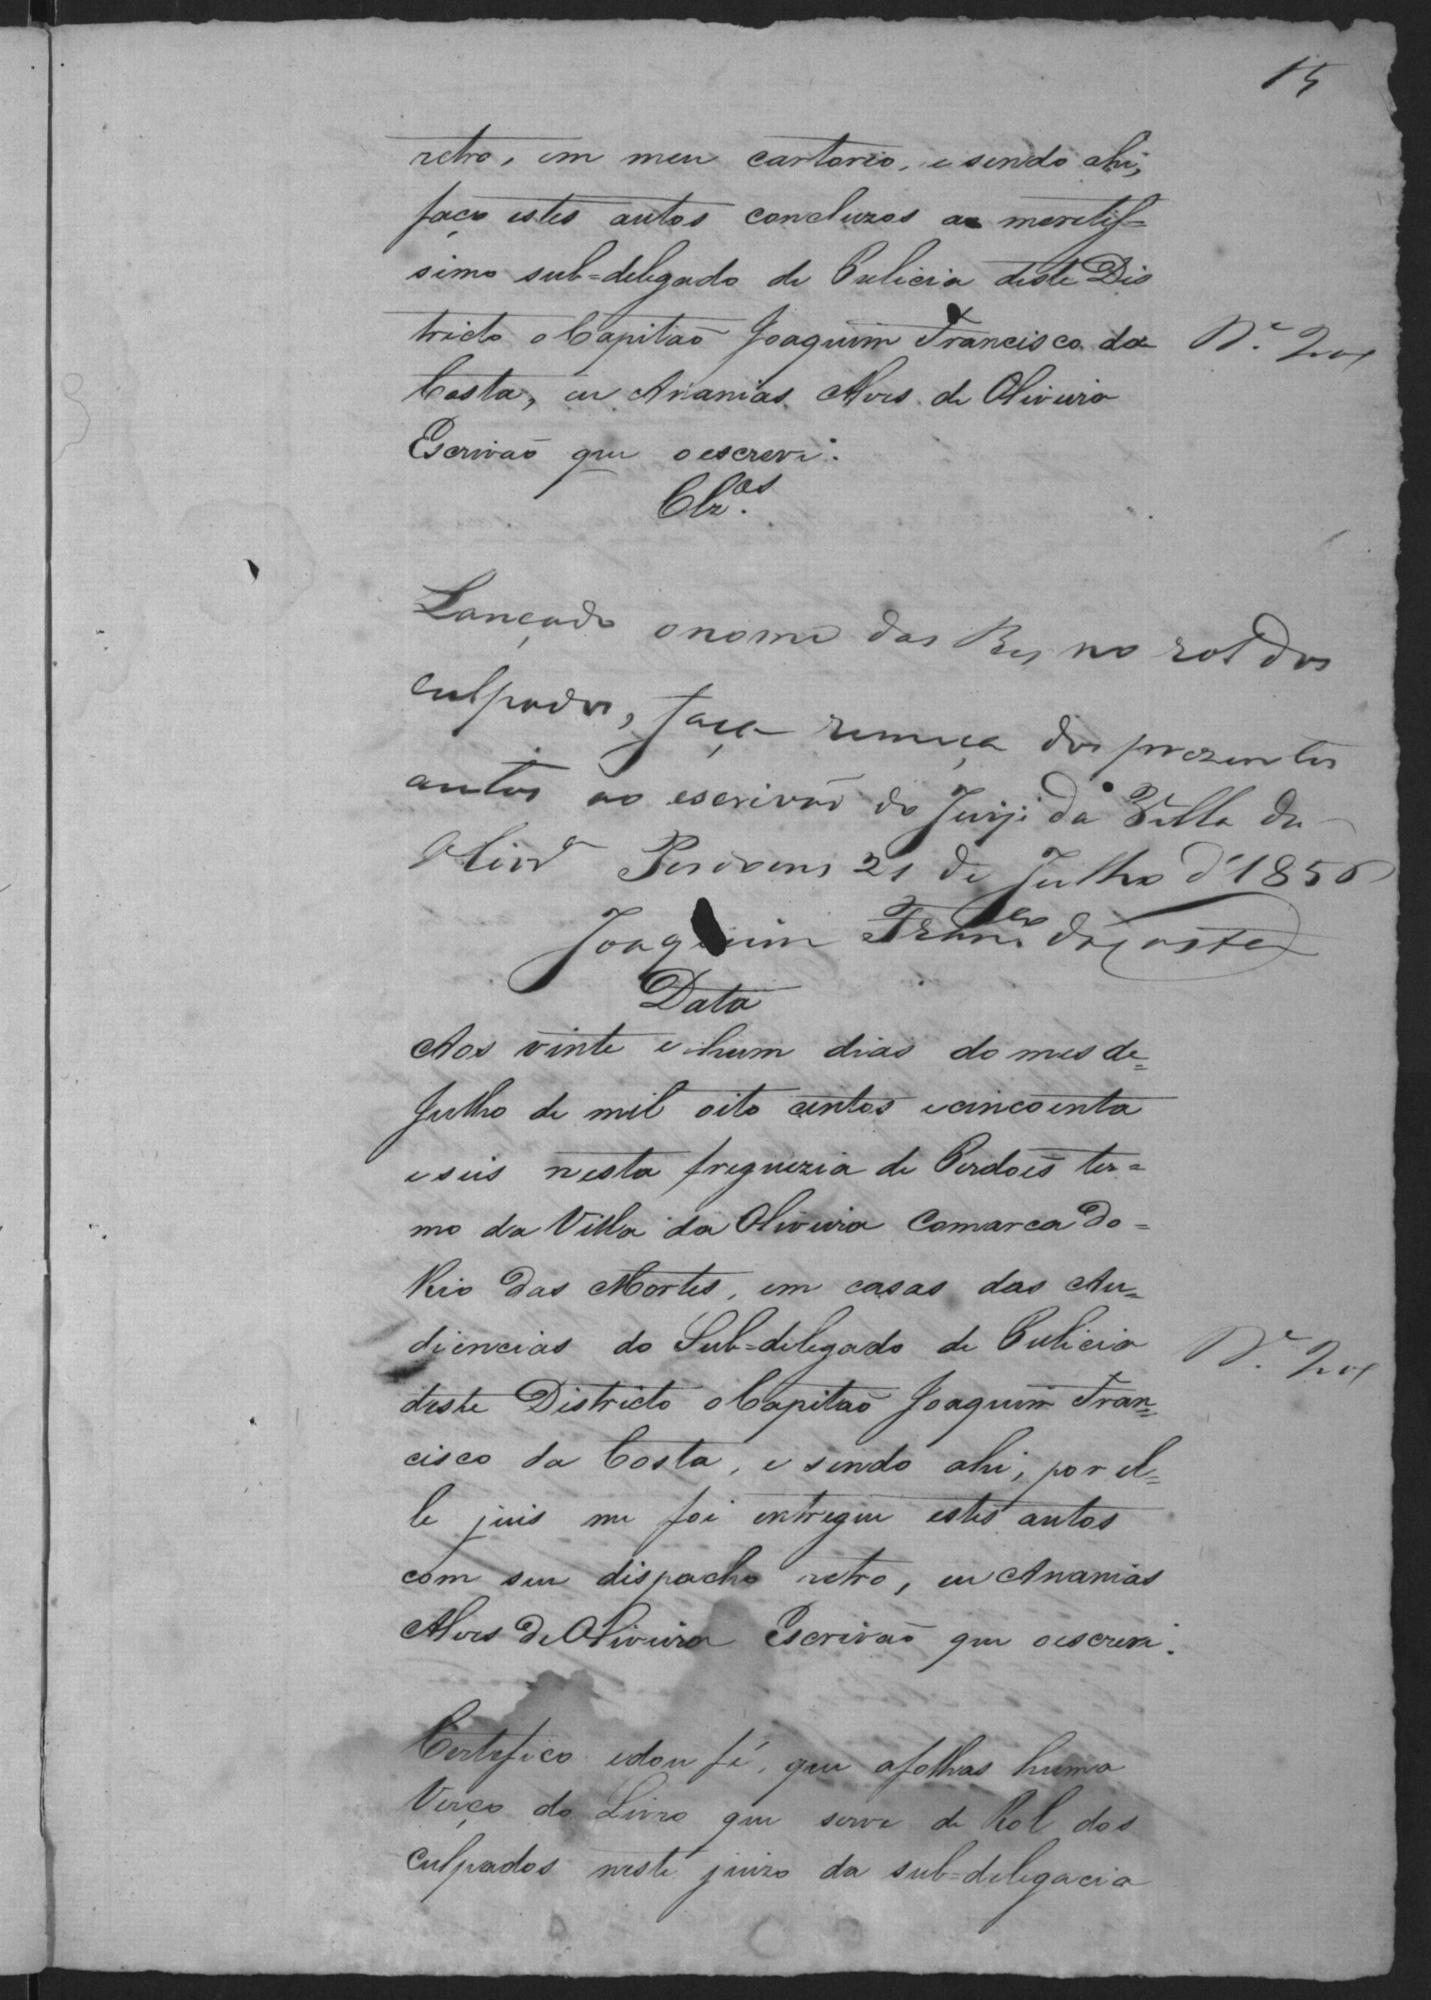 15
retro, em meu cartorio, e sendo ahi,
faço estes autos concluzos ao meretis=
simo sub=delegado de Pulicia deste Dis
tricto o Capitaõ Joaquim Francisco da
Costa, eu Ananias Alves de Oliveira
Escrivaõ que o escrevi.
Clz.os
Lançado o nome das Res no rol dos
culpados, faça remeça dos prezentes
autos ao escrivaõ do Jury da Villa da
Olivr.a Perdoens 21 de Julho d'1856
Joaquim Fran.co da Costa
Data
Aos vinte e hum dias do mes de=
Julho de mil oito centos e cincoenta
e seis nesta freguezia de Perdoẽs ter=
mo da Villa da Oliveira Comarca do=
Rio das Mortes, em casas das Au=
diencias do Sub=delegado de Pulicia
deste Districto o Capitaõ Joaquim Fran=
cisco da Costa, e sendo ahi, por el=
le juis me foi entregue estes autos
com seu dispacho retro, eu Ananias
Alves de Oliveira Escrivaõ que o escrevi.
Certefico e dou fé, que a folhas huma
Verço do Livro que serve de Rol dos
culpados neste juizo da sub=delegacia